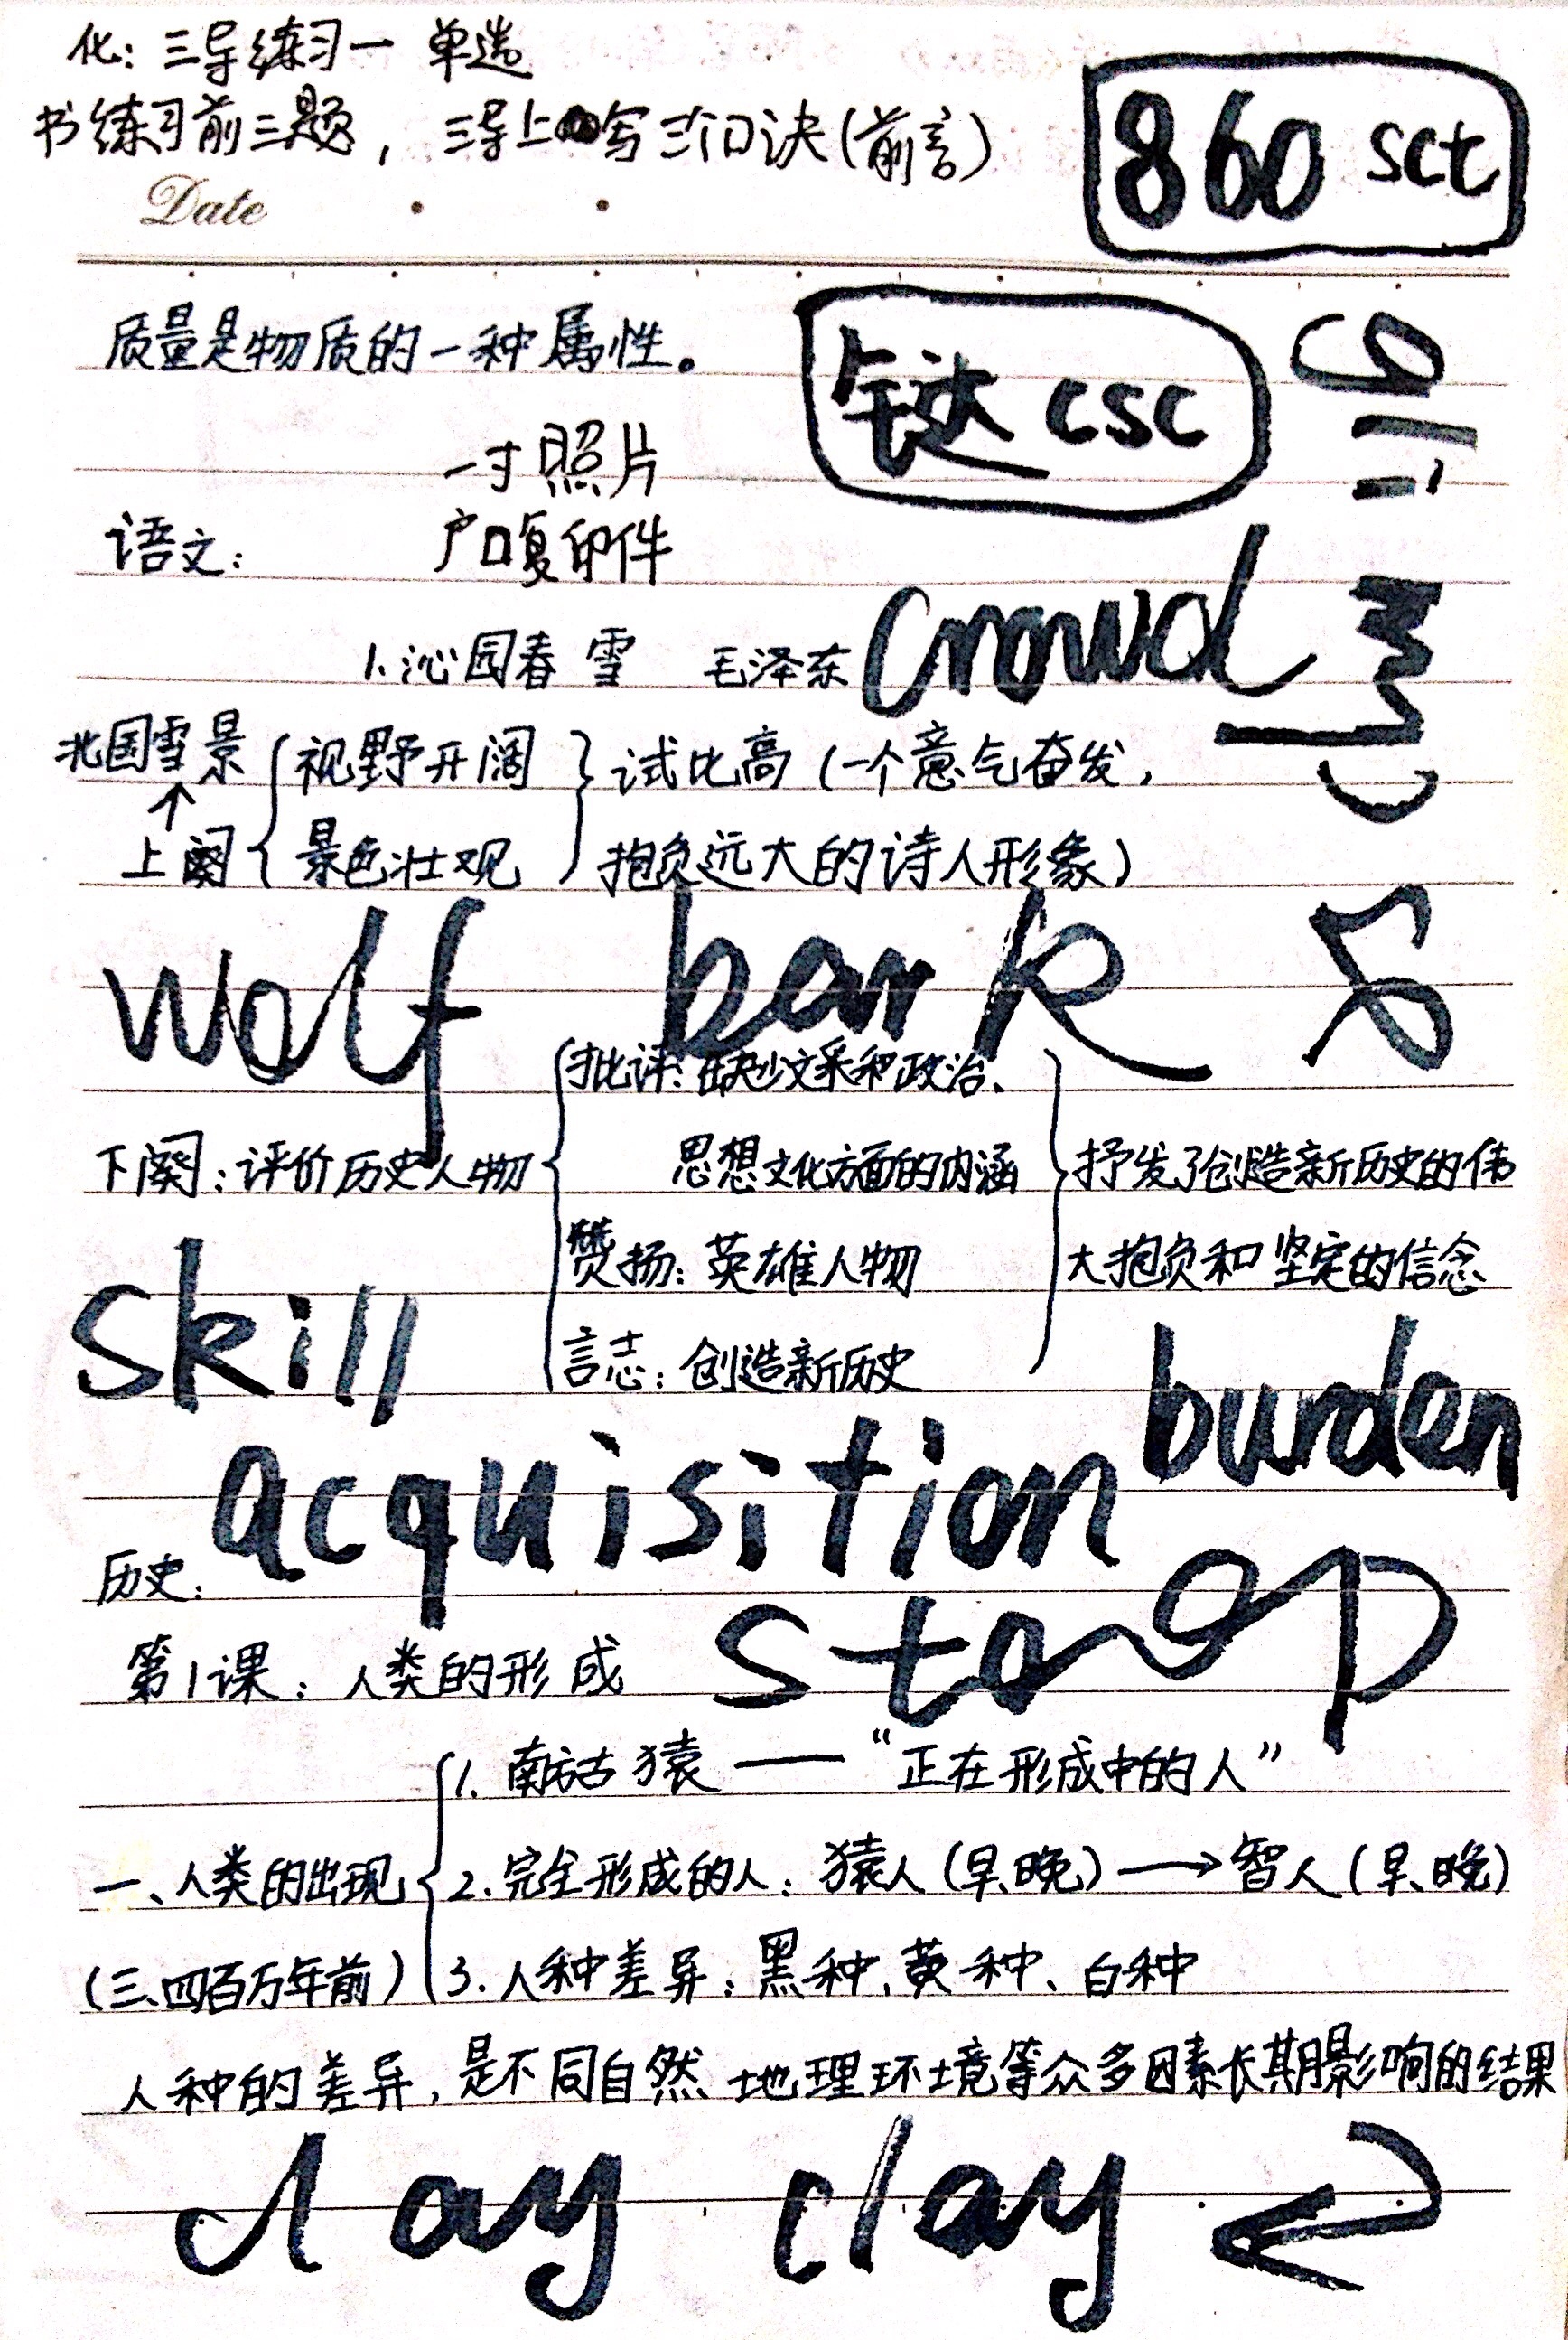 化：三导练习一 单选
书练习前三题，三导上写三个口诀（前言）
860 sct
Date
质量是物质的一种属性。
钛 csc
一寸照片
语文：
户口复印件
crowd
1.沁园春 雪 毛泽东
北国雪景
↑
上阕
视野开阔
景色壮观
试比高（一个意气奋发，
抱负远大的诗人形象）
wolf bark
下阕：评价历史人物
批评：缺少文采和政治、
思想文化方面的内涵
赞扬：英雄人物
言志：创造新历史
抒发了创造新历史的伟
大抱负和坚定的信念
skill
burden
acquisition
历史：
stoop
第1课：人类的形成
一、人类的出现
（三、四百万年前）
1. 南方古猿——“正在形成中的人”
2. 完全形成的人：猿人（早、晚）→智人（早、晚）
3. 人种差异：黑种、黄种、白种
人种的差异，是不同自然、地理环境等众多因素长期影响的结果
clay clay